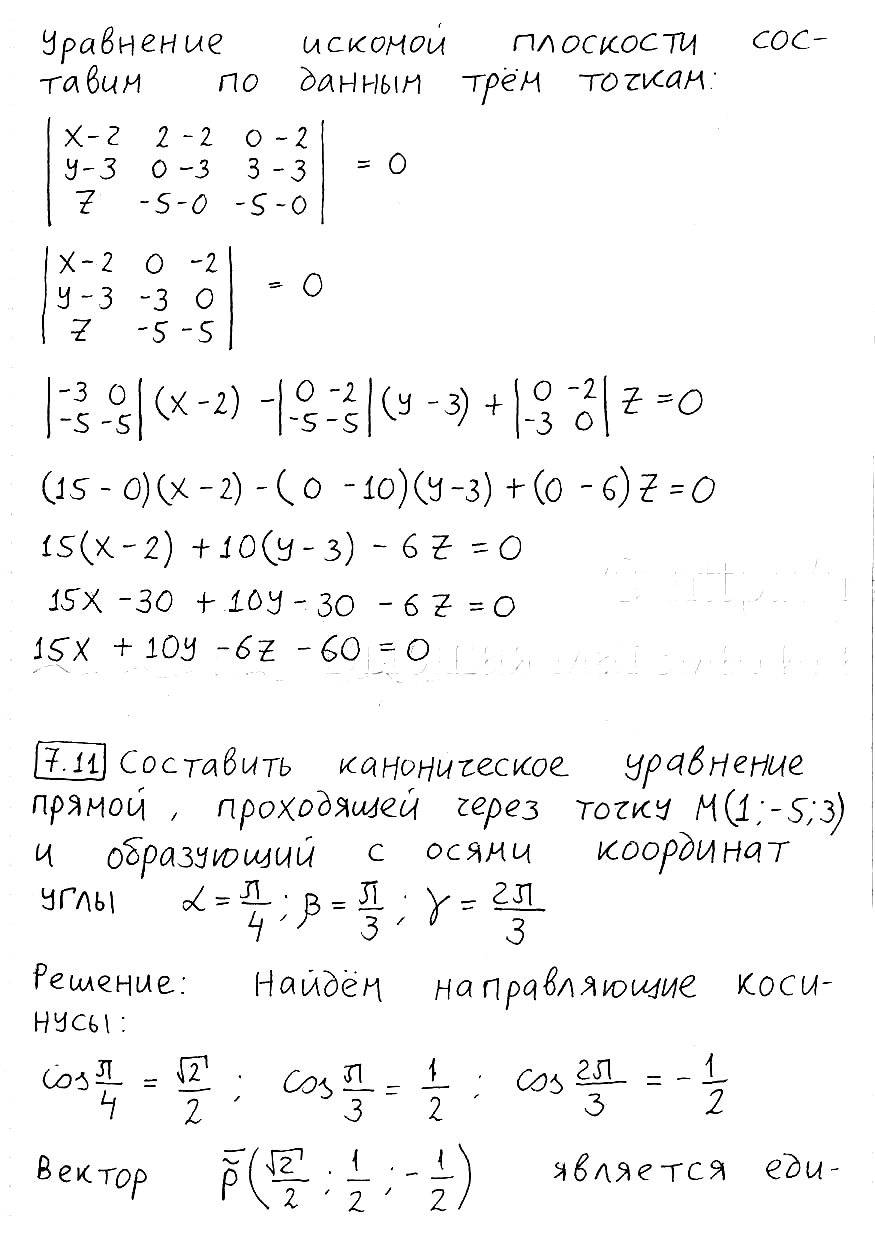 Уравнение искомой плоскости сос-
тавим по данным трём точкам:
| x-2 2-2 0-2 |
| y-3 0-3 3-3 | = 0
| z -5-0 -5-0 |
| x-2 0 -2 |
| y-3 -3 0 | = 0
| z -5 -5 |
|-3 0; -5 -5| (x-2) - |0 -2; -5 -5| (y-3) + |0 -2; -3 0| z = 0
(15-0)(x-2) - (0-10)(y-3) + (0-6)z = 0
15(x-2) + 10(y-3) - 6z = 0
15x - 30 + 10y - 30 - 6z = 0
15x + 10y - 6z - 60 = 0
7.11 Составить каноническое уравнение
прямой, проходящей через точку M(1;-5;3)
и образующий с осями координат
углы α = π/4; β = π/3; γ = 2π/3
Решение: Найдём направляющие коси-
нусы:
cos π/4 = √2/2; cos π/3 = 1/2; cos 2π/3 = -1/2
Вектор p̄(√2/2; 1/2; -1/2) является еди-